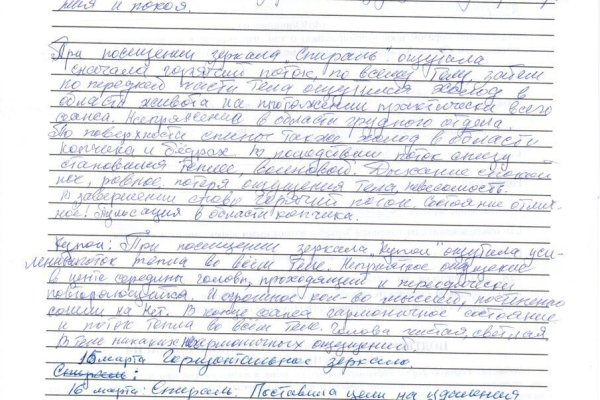 ния и покоя.
При посещении зеркала "Спираль" ощутила
сначала горячий поток, по всему телу, затем
по передней части тела ощущался холод в
области живота на протяжении практически всего
сеанса. Напряжение в области грудного отдела.
По поверхности спины также холод в области
копчика и бёдрах. В последствии поток снизу
становился теплее, волновой. Дыхание спокой
ное, ровное, потеря ощущения тела, невесомость.
В завершении снова горячий поток. Состояние отлич-
ное. Пульсация в области копчика.
Купол: При посещении зеркала "Купол" ощутила уси-
ленный поток тепла во всём теле. Неприятное ощущение
в центе середины головы, проходящий и переодически
повторяющийся. И огромное кол-во мыслей, постепенно
сошли на нет. В конце сеанса гармоничное состояние
и поток тепла во всём теле. Голова чистая, светлая,
в теле никаких негармоничных ощущений.
15 марта Горизонтальное зеркало.
Спираль:
16 марта: Спираль. Поставила цели на удаления